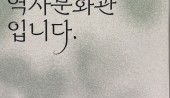 역사문화관
입니다.